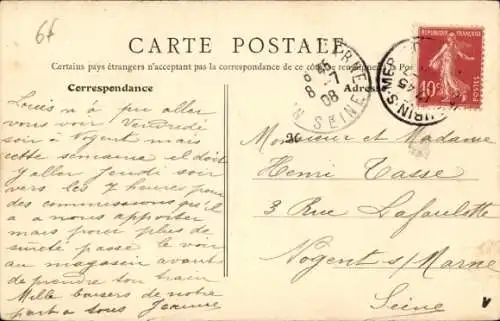 6f
CARTE POSTALE
Certains pays étrangers n'acceptant pas la correspondance de ce côté, se renseigner à la Poste
Correspondance
Adresse
RÉPUBLIQUE FRANÇAISE
10c
POSTES
SEINE
08
Louis n'a pu aller
vous voir Vendredi
soir à Nogent mais
cette semaine il doit
y aller Jeudi soir
vers les 7 heures pour
des commissions qu'il
a a nous apporter
mais pour plus de
sûreté passe le voir
au magasin avant
de prendre ton train
Mille baisers de notre
part a tous Jeanne
Monsieur et Madame
Henri Tasse
3 Rue Lafaulotte
Nogent s/ Marne
Seine
v